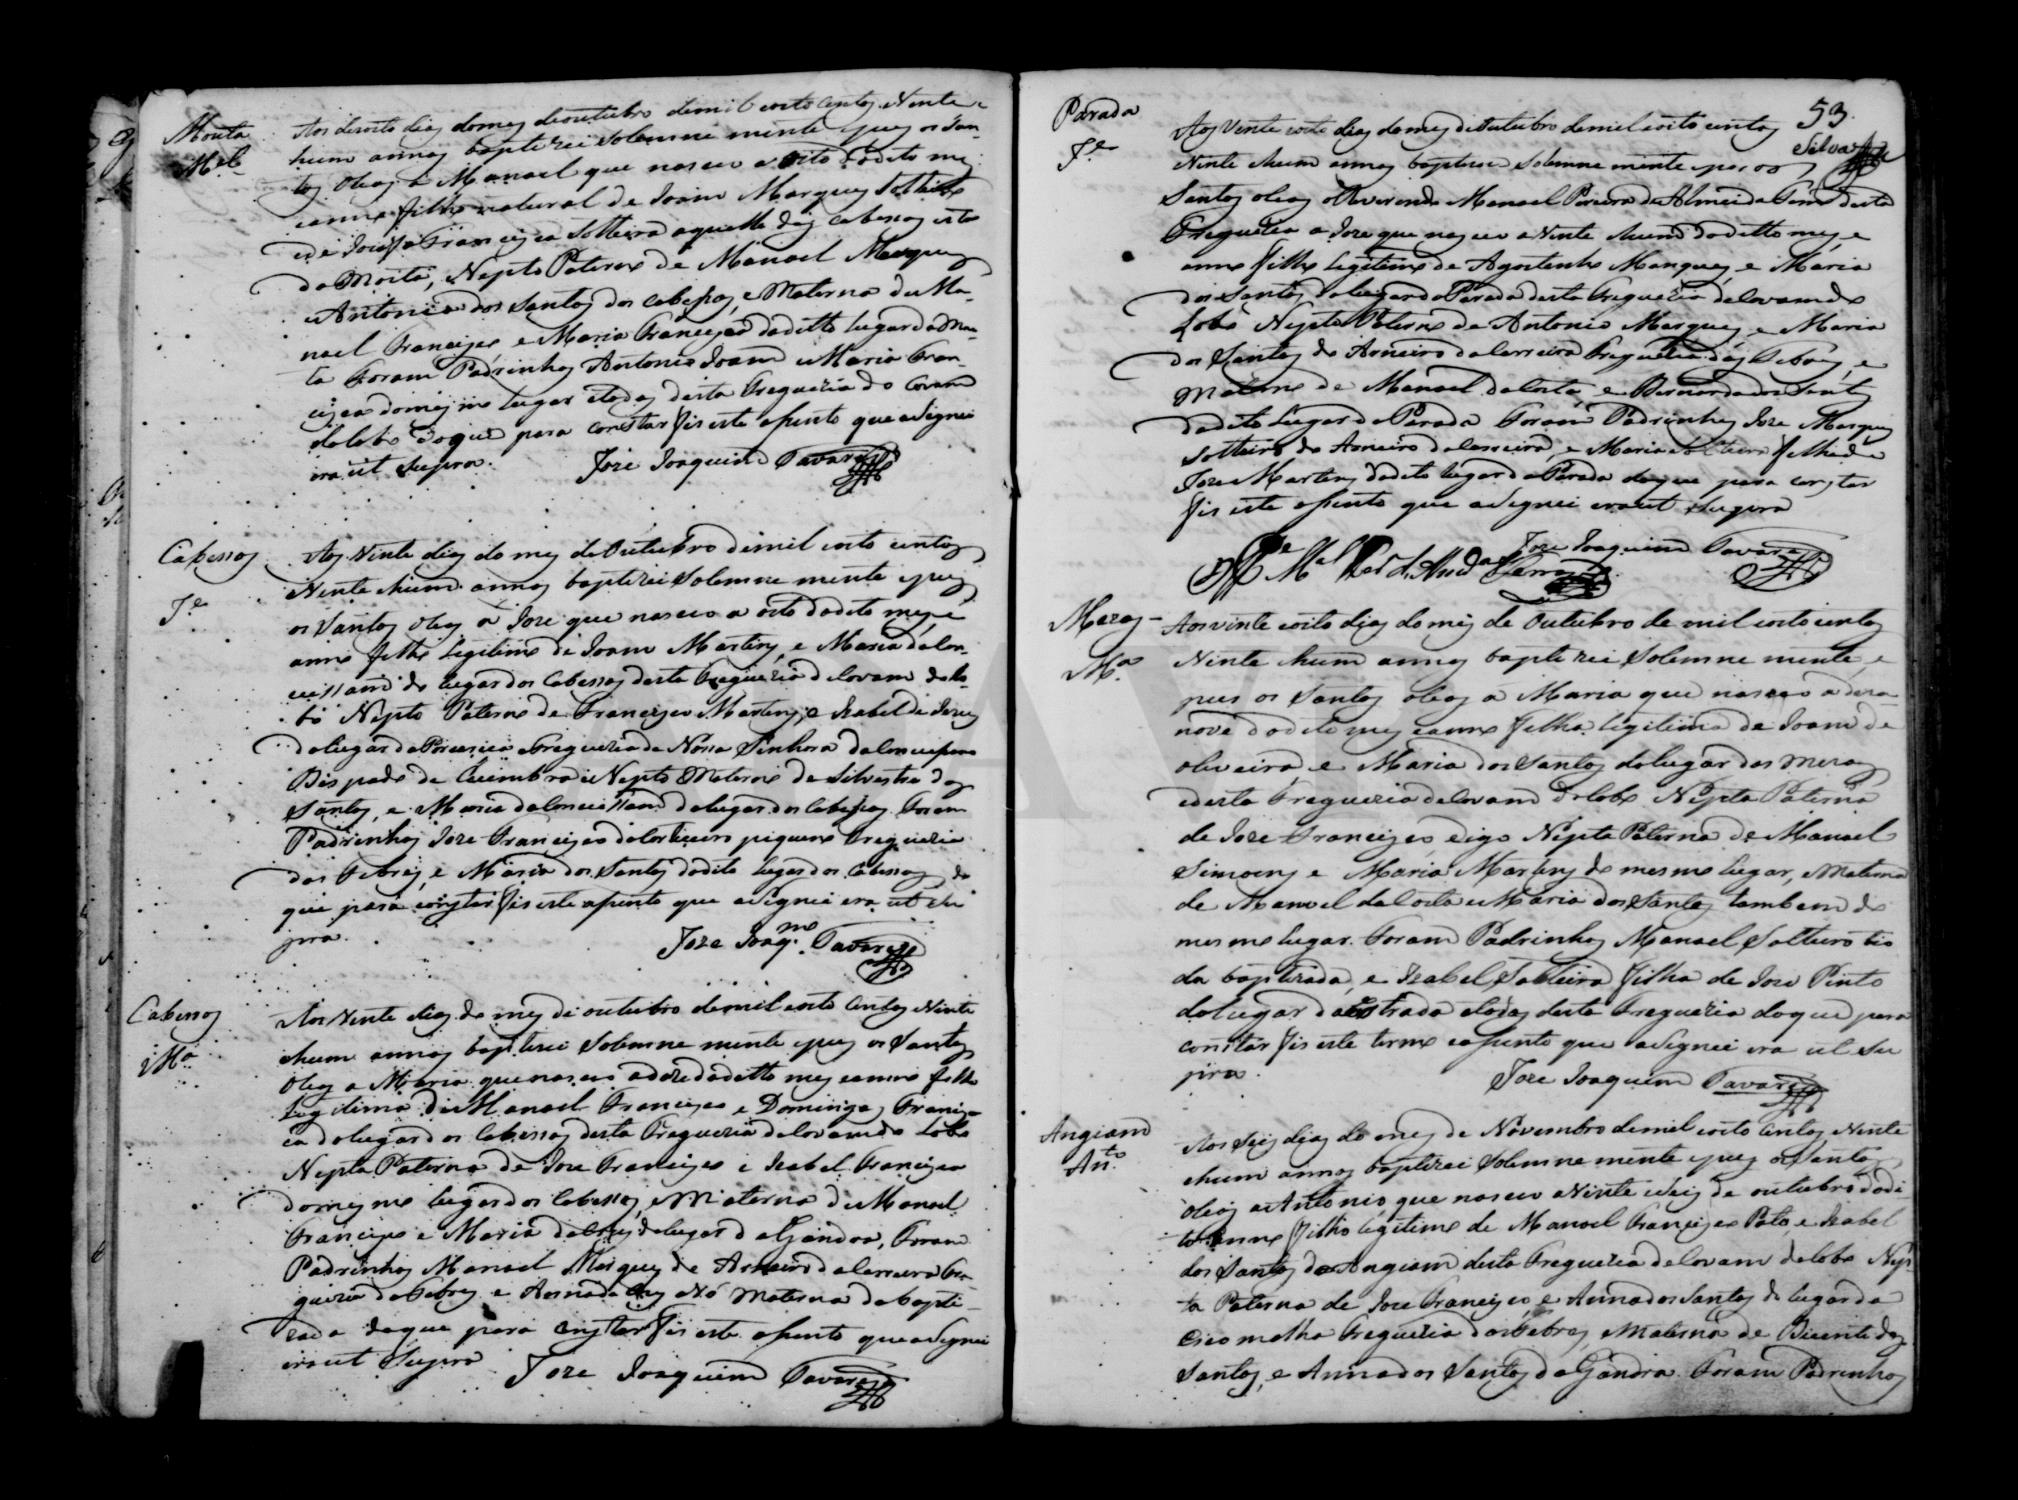 Mouta
M.el
Aos desoito dias do mes de outubro de mil oito centos Ninta e
hum annos baptizei solemne mente e pus os San-
tos oleos a Manoel que nasceo a oito do dito mes
e anno filho natural de Joam Marques Solteiro
e de Josefa Francisca Solteira aquelle dos Cabessos esta
da Moita, Nepto Paterno de Manoel Marques
e Antonia dos Santos dos Cabessos, e Materno de Ma-
noel Francisco e Maria Francisca do ditto lugar da Mou-
ta Foram Padrinhos Antonio Joam e Maria Fran-
cisca do mesmo lugar e todos desta Freguezia do Covam
do lobo do que para constar fis este asento que asignei
era ut supra.
Joze Joaquim Tavares
Cabessos
J.e
Aos Vinte dias do mes de Outubro de mil oito centos
Ninta e hum annos baptizei Solemne mente e pus
os Santos oleos a Joze que nasceo a oito do dito mes, e
anno filho legitimo de Joam Martins, e Maria da Con-
ceissam do lugar dos Cabessos desta Freguezia do Covam do lo-
bo Neptto Paterno de Francisco Martins, e Izabel de Jezus
do lugar da Freguezia de Nossa Senhora da Conceipsam
Bispado de Cuimbra e Nepto Materno de Silvestre dos
Santos, e Maria da Conceissam do lugar dos Cabessos Foram
Padrinhos Joze Francisco do Corticeiro piqueno Freguezia
das Febres, e Maria dos Santos do dito lugar dos Cabessos do
que para constar fis este asento que asignei era ut su
pra.
Joze Joaq.m Tavares
Cabessos
M.a
Aos Vinte dias do mes de outubro de mil oito centos Ninta
e hum annos baptizei Solemne mente e pus os Santos
Oleos a Maria que nasceo a doze do ditto mes e anno filha
legitima de Manoel Francisco e Domingas Francis-
ca do lugar dos Cabessos desta Freguezia do Covam do Lobo
Nepta Paterna de Joze Francisco e Izabel Francisca
do mesmo lugar dos Cabessos, e Materna de Manoel
Francisco e Maria da Cruz do lugar da Gandra, Foram
Padrinhos Manoel Marques de Arneiro da Carreira Fre
guezia das Febres e Avó Materna da bapti-
zada do que para constar fis este asento que asignei
era ut supra
Joze Joaquim Tavares
53.
Silva
Parada
J.e
Aos Vinte e oito dias do mes de Outubro de mil oito centos
Ninta e hum annos baptizou solemne mente e pos os
Santos oleos o Reverendo Manoel Pereira de Almeida desta
Freguezia a Joze que nasceo a Vinte e hum do ditto mes, e
anno filho legitimo de Agostinho Marques, e Maria
dos Santos, do lugar da Parada desta Freguezia do Covam do
Lobo Neptto Paterno de Antonio Marques, e Maria
dos Santos do Arneiro da Carreira Freguezia das Febres, e
Materno de Manoel da Costa, e Bernarda dos Santos
do dito Lugar da Parada Foram Padrinhos Joze Marques
Solteiro do Arneiro da Carreira, e Maria Solteira filha de
Joze Martins do dito lugar da Parada do que para constar
fis este asento que asignei era ut Supra
Joze Joaquim Tavares
Meras
M.a
Aos vinte e oito dias do mes de Outubro de mil oito centos
Ninta e hum annos baptizei Solemne mente, e
pus os Santos oleos a Maria que nasceo a deza-
nove do dito mes e anno filha legitima de Joam de
oliveira, e Maria dos Santos do lugar das Meras
e desta Freguezia do Covam do lobo Nepta Paterna
de Joze Francisco, digo Nepta Paterna de Manoel
Simoens e Maria Martins do mesmo lugar, e Materna
de Manoel da Costa e Maria dos Santos tambem do
mesmo lugar. Foram Padrinhos Manoel Solteiro tio
da baptizada, e Izabel Solteira filha de Joze Pinto
do lugar da Estrada e todos desta Freguezia do que para
constar fis este termo e asento que asignei era ut Su
pra.
Joze Joaquim Tavares
Angiam
An.to
Aos Seis dias do mes de Novembro de mil oito centos Ninta
e hum annos baptizei Solemne mente e pus os Santos
oleos a Antonio, que nasceo a Vinte e Seis de outubro do di-
to anno filho legitimo de Manoel Francisco Pato, e Izabel
dos Santos da Angiam desta Freguezia do Covam do lobo Nep-
to Paterno de Joze Francisco, e Anna dos Santos do lugar da
malha Freguezia das Febres, e Materno de Vicente dos
Santos, e Anna dos Santos da Gandra. Foram Padrinhos